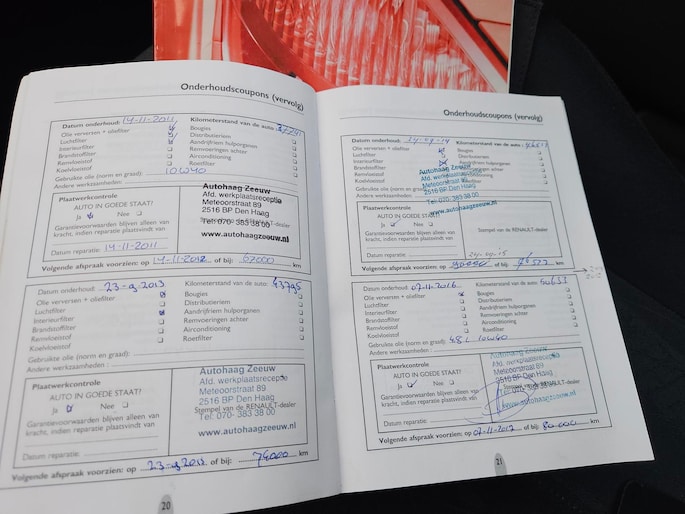 Onderhoudscoupons (vervolg)
Datum onderhoud: 14-11-2011 Kilometerstand van de auto:
Olie verversen + oliefilter Bougies
Luchtfilter Distributieriem
Interieurfilter Aandrijfriem hulporganen
Brandstoffilter Remvoeringen achter
Remvloeistof Airconditioning
Koelvloeistof Roetfilter
Gebruikte olie (norm en graad): 10W40
Andere werkzaamheden:
Plaatwerkcontrole
AUTO IN GOEDE STAAT?
Ja Nee
Garantievoorwaarden blijven alleen van
kracht, indien reparatie plaatsvindt van
Datum reparatie: 14-11-2011
Autohaag Zeeuw
Afd. werkplaatsreceptie
Meteoorstraat 89
2516 BP Den Haag
Tel: 070-383 38 00
www.autohaagzeeuw.nl
Volgende afspraak voorzien: op 14-11-2012 of bij: 67000 km
Datum onderhoud: 23-9-2013 Kilometerstand van de auto: 43795
Olie verversen + oliefilter Bougies
Luchtfilter Distributieriem
Interieurfilter Aandrijfriem hulporganen
Brandstoffilter Remvoeringen achter
Remvloeistof Airconditioning
Koelvloeistof Roetfilter
Gebruikte olie (norm en graad):
Andere werkzaamheden:
Plaatwerkcontrole
AUTO IN GOEDE STAAT?
Ja Nee
Garantievoorwaarden blijven alleen van
kracht, indien reparatie plaatsvindt van
Datum reparatie:
Autohaag Zeeuw
Afd. werkplaatsreceptie
Meteoorstraat 89
2516 BP Den Haag
Stempel van de RENAULT-dealer
Tel: 070- 383 38 00
www.autohaagzeeuw.nl
Volgende afspraak voorzien: op of bij: 74000 km
20
Onderhoudscoupons (vervolg)
Datum onderhoud: Kilometerstand van de auto:
Olie verversen + oliefilter Bougies
Luchtfilter Distributieriem
Interieurfilter Aandrijfriem hulporganen
Brandstoffilter Remvoeringen achter
Remvloeistof Airconditioning
Koelvloeistof Roetfilter
Gebruikte olie (norm en graad):
Andere werkzaamheden:
Plaatwerkcontrole
AUTO IN GOEDE STAAT?
Ja Nee
Garantievoorwaarden blijven alleen van
kracht, indien reparatie plaatsvindt van
Datum reparatie:
Autohaag Zeeuw
Afd. werkplaatsreceptie
Meteoorstraat 89
2516 BP Den Haag
Tel: 070- 383 38 00
www.autohaagzeeuw.nl
Stempel van de RENAULT-dealer
Volgende afspraak voorzien: op of bij: km
Datum onderhoud: 02-11-2016 Kilometerstand van de auto: 50633
Olie verversen + oliefilter Bougies
Luchtfilter Distributieriem
Interieurfilter Aandrijfriem hulporganen
Brandstoffilter Remvoeringen achter
Remvloeistof Airconditioning
Koelvloeistof Roetfilter
Gebruikte olie (norm en graad): 4.8 L 10W40
Andere werkzaamheden:
Plaatwerkcontrole
AUTO IN GOEDE STAAT?
Ja Nee
Garantievoorwaarden blijven alleen van
kracht, indien reparatie plaatsvindt van
Datum reparatie:
Autohaag Zeeuw
Afd. werkplaatsreceptie
Meteoorstraat 89
2516 BP Den Haag
www.autohaagzeeuw.nl
Volgende afspraak voorzien: op 02-11-2017 of bij: 80 000 km
21